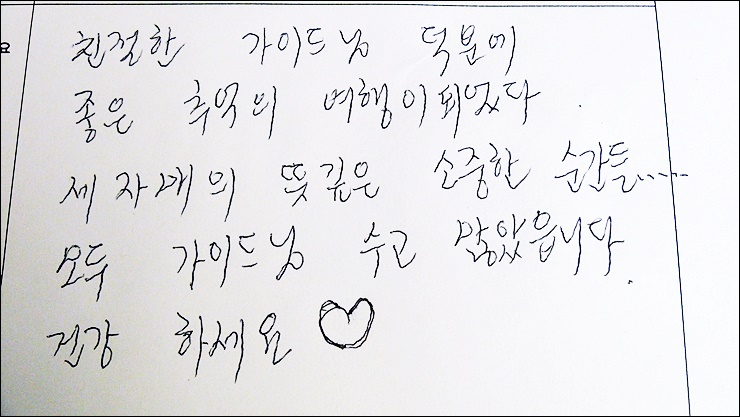 친절한 가이드님 덕분에
좋은 추억의 여행이 되었다.
세 자매의 뜻깊은 소중한 순간들....
모두 가이드님 수고 많았읍니다.
건강 하세요 ♡